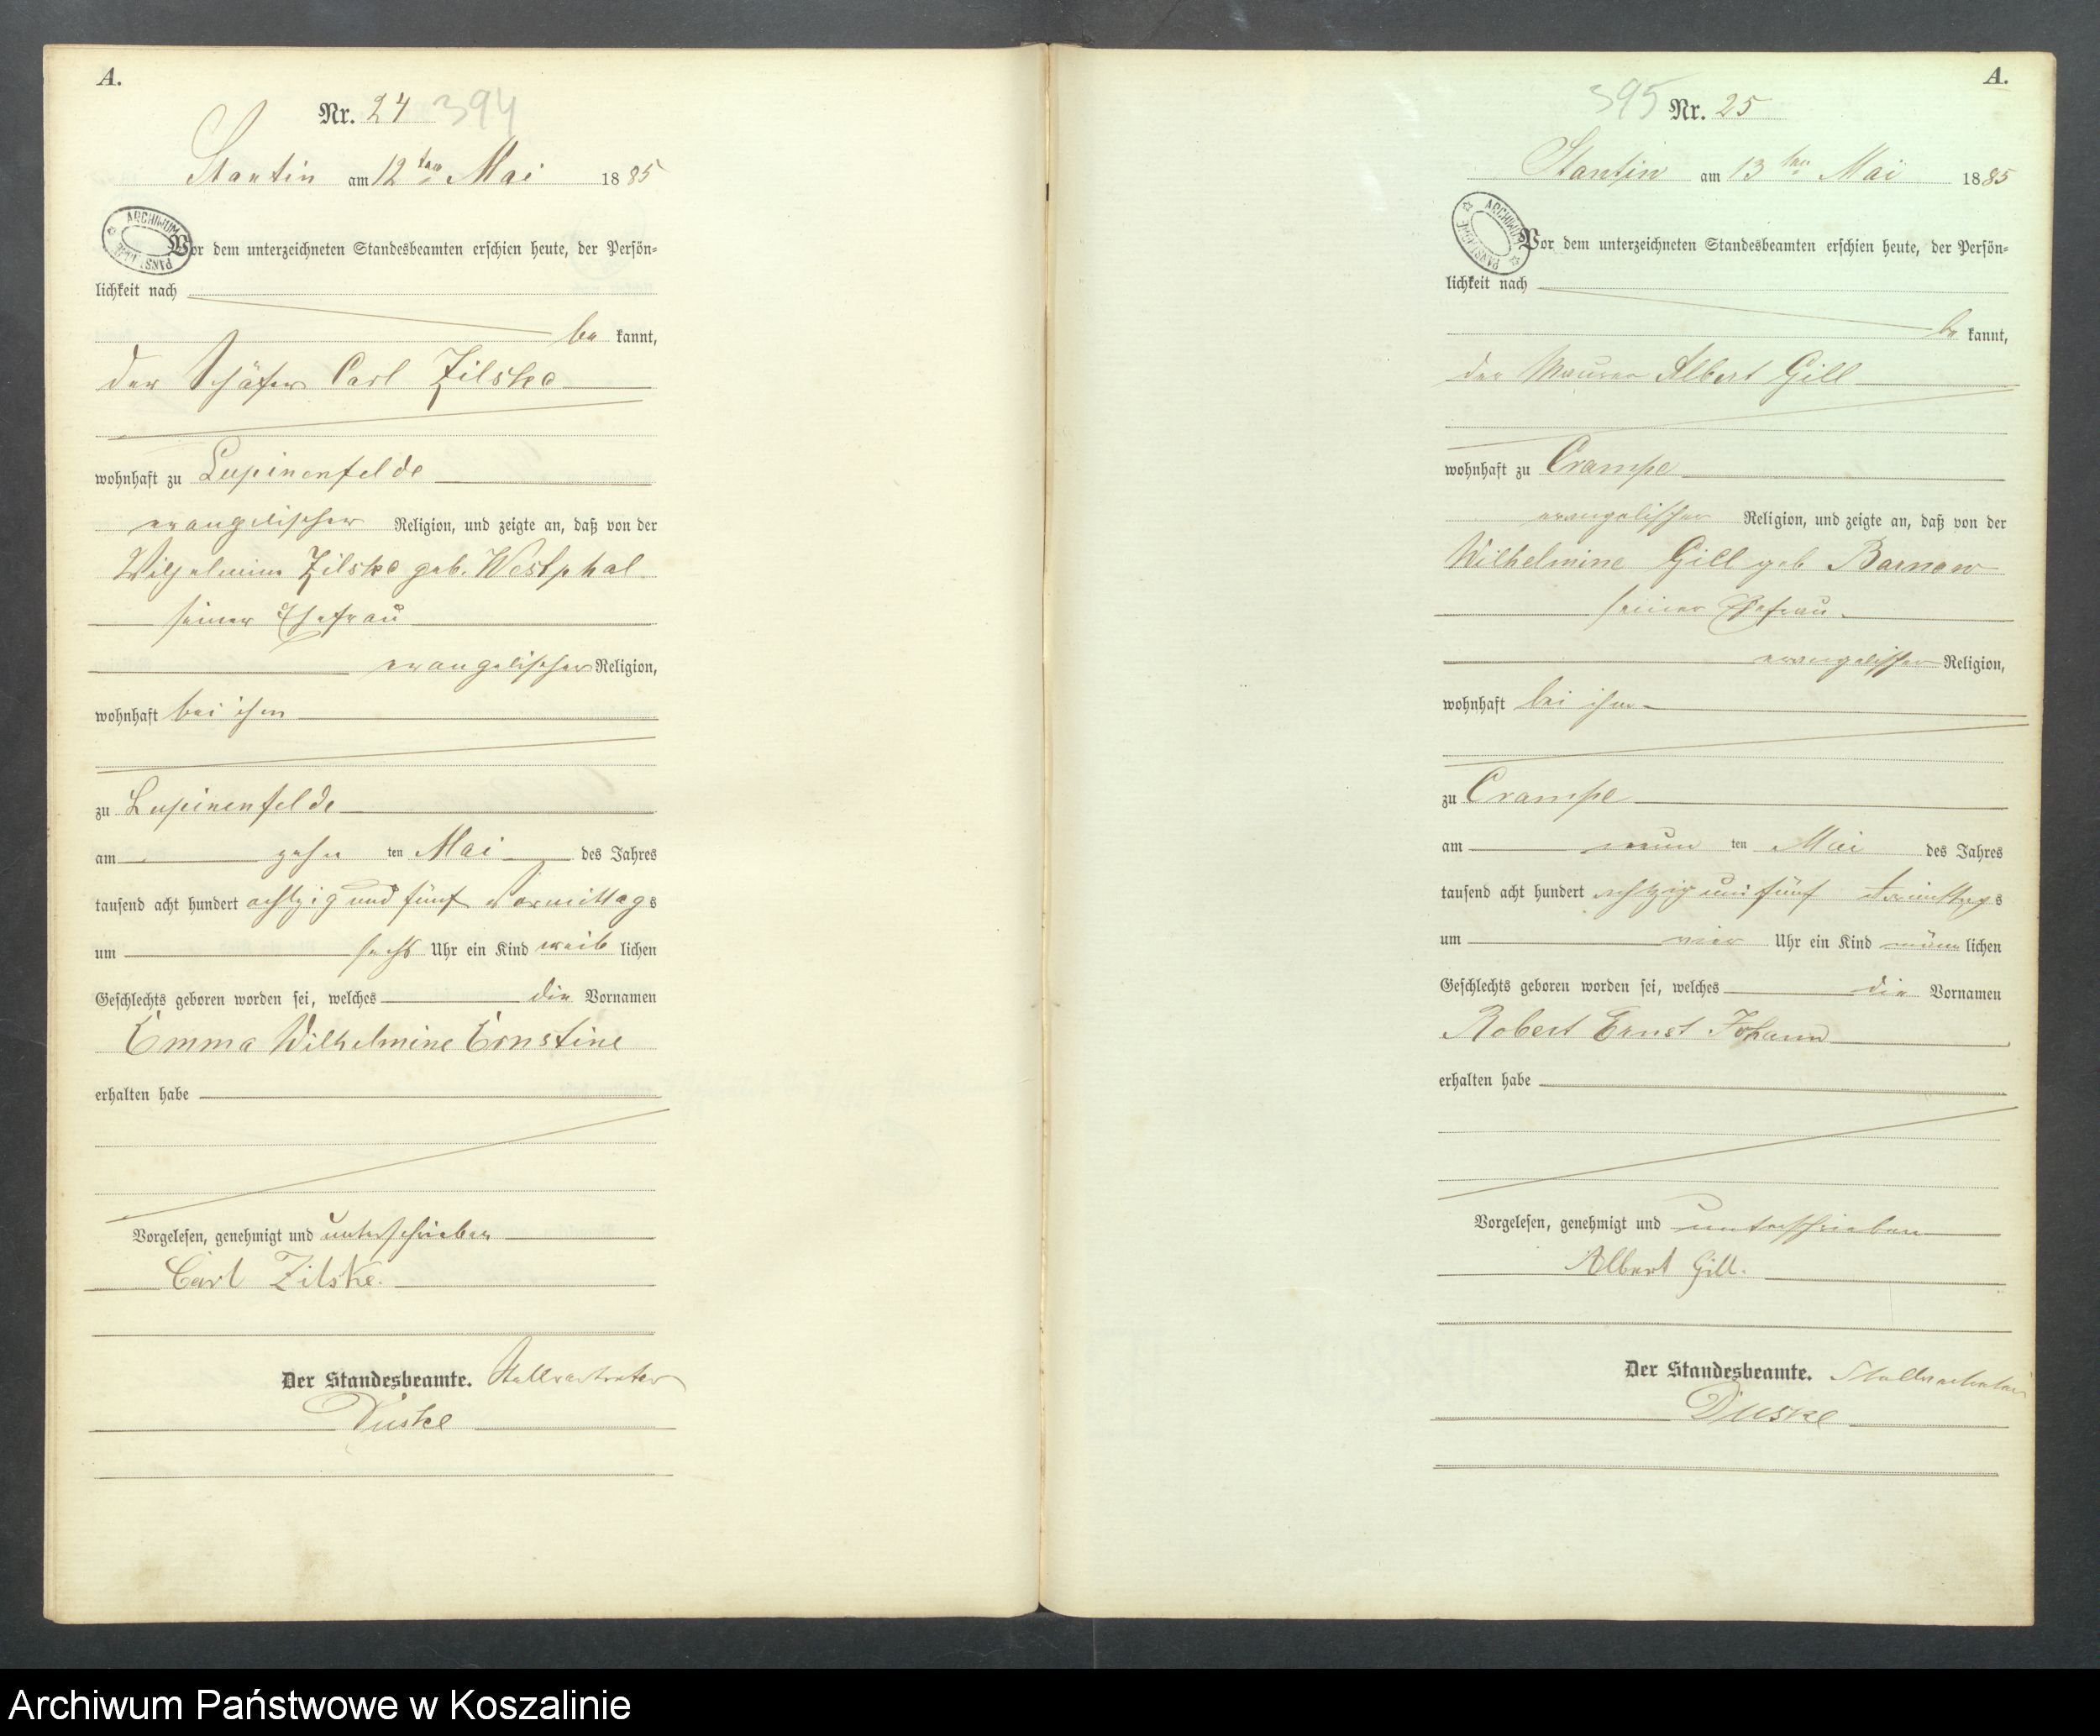 A.
Nr. 24 394
Stantin am 12ten Mai 1885
ARCHIWUM PAŃST
Vor dem unterzeichneten Standesbeamten erschien heute, der Persön=
lichkeit nach
be kannt,
der Schäfer Carl Zilske
wohnhaft zu Lupinenfelde
evangelischer Religion, und zeigte an, daß von der
Wilhelmine Zilske geb. Westphal
seiner Ehefrau
evangelischer Religion,
wohnhaft bei ihm
zu Lupinenfelde
am zehn ten Mai des Jahres
tausend acht hundert achtzig und fünf Vormittags
um sechs Uhr ein Kind weib lichen
Geschlechts geboren worden sei, welches die Vornamen
Emma Wilhelmine Ernstine
erhalten habe
Vorgelesen, genehmigt und unterschrieben
Carl Zilske.
Der Standesbeamte. Stellvertreter
Duske
A.
395 Nr. 25
Stantin am 13ten Mai 1885
ARCHIWUM PAŃST
Vor dem unterzeichneten Standesbeamten erschien heute, der Persön=
lichkeit nach
be kannt,
der Maurer Albert Gill
wohnhaft zu Crampe
evangelischer Religion, und zeigte an, daß von der
Wilhelmine Gill geb Barnow
seiner Ehefrau
evangelischer Religion,
wohnhaft bei ihm
zu Crampe
am neun ten Mai des Jahres
tausend acht hundert achtzig und fünf
um vier Uhr ein Kind männ lichen
Geschlechts geboren worden sei, welches die Vornamen
Robert Ernst Johann
erhalten habe
Vorgelesen, genehmigt und unterschrieben
Albert Gill.
Der Standesbeamte. Stellvertreter
Duske
Archiwum Państwowe w Koszalinie